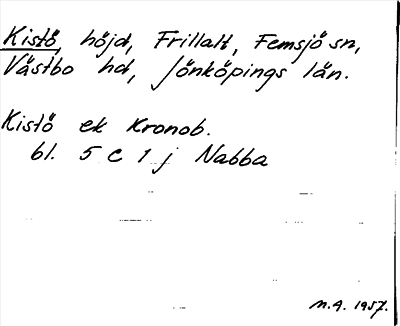 Kistö, höjd, Frillatt, Femsjö sn,
Västbo hd, Jönköpings län.
Kistö ek Kronob.
bl. 5 C 1 j Nabba
M.A. 1957.